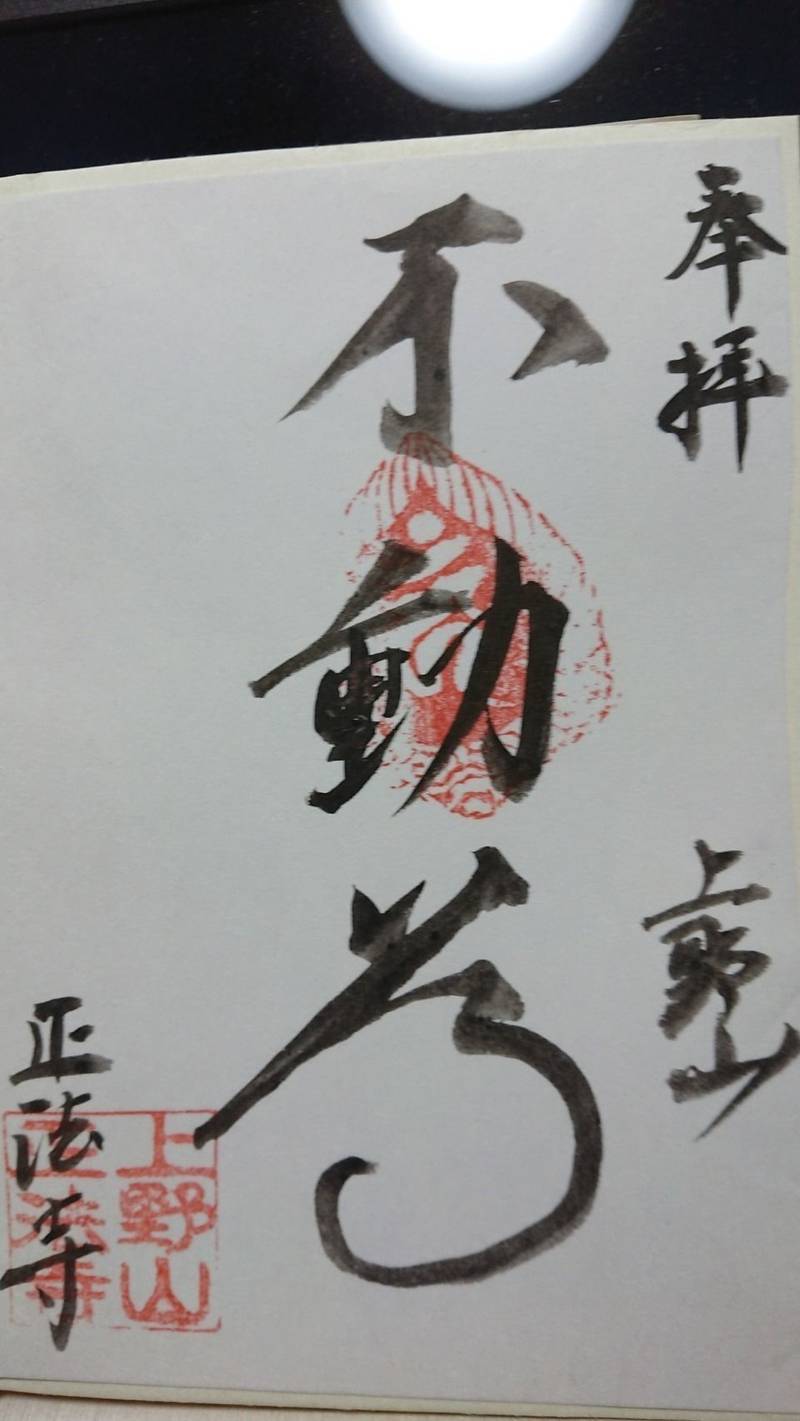 奉拝
上野山
不動尊
正法寺
上野山
正法寺